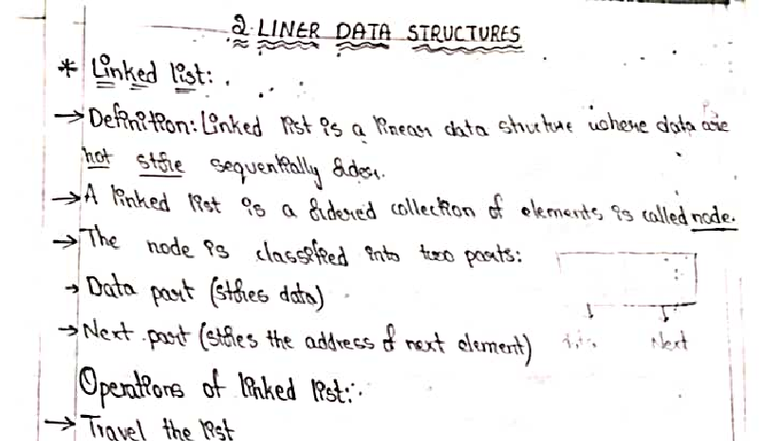 2. LINER DATA STRUCTURES
* Linked list:
→ Definition: Linked list is a linear data structure where data are
not store sequentially order.
→ A linked list is a ordered collection of elements is called node.
→ The node is classified into two parts:
→ Data part (stores data)
→ Next part (stores the address of next element)
Next
Operations of linked list:
→ Travel the list